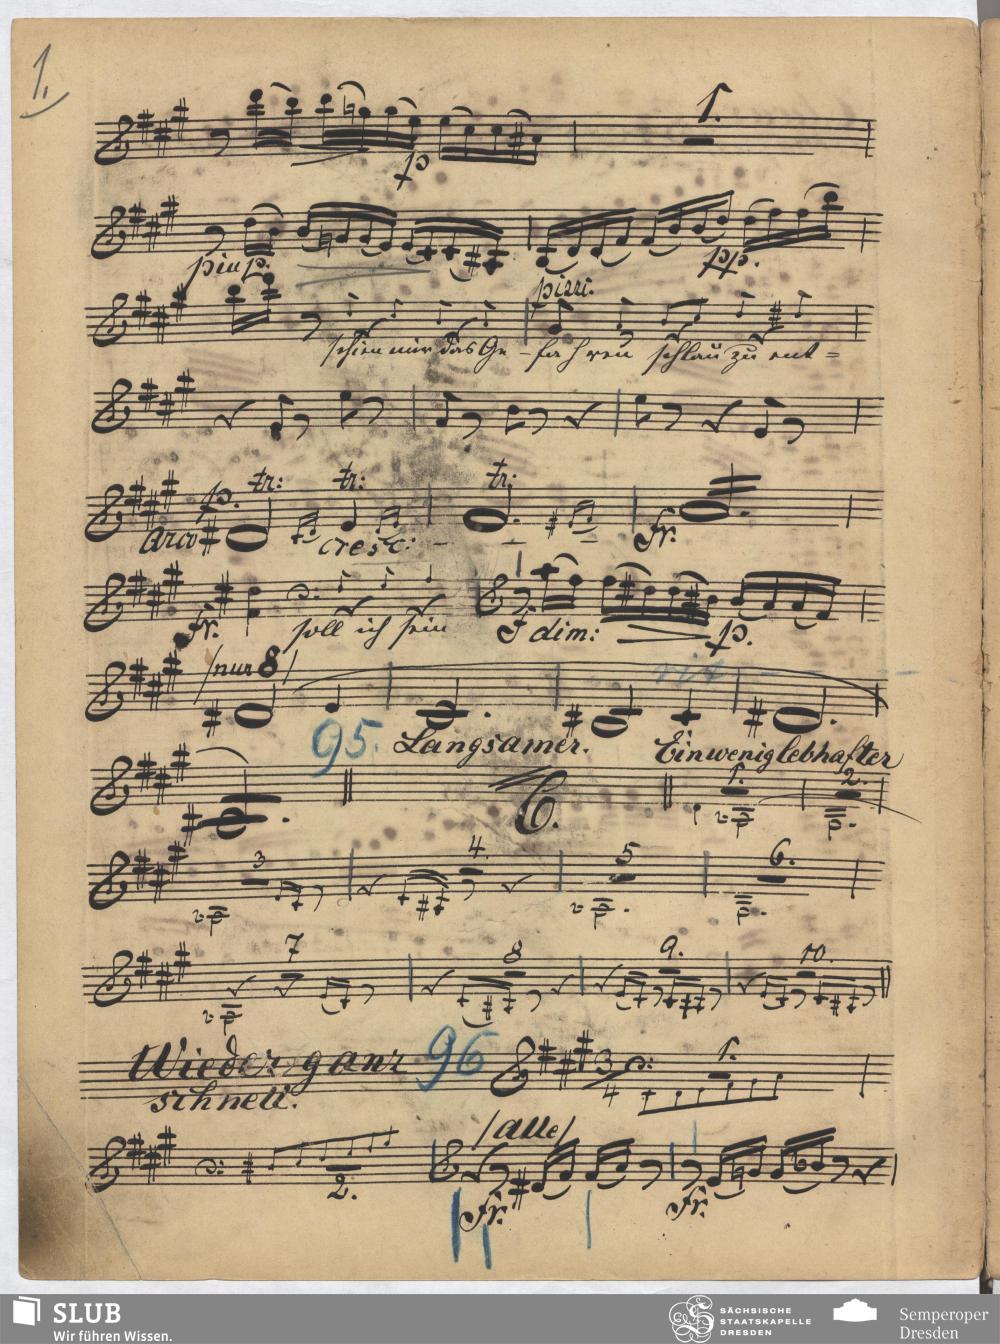 1.
1.
p
piu p.
pp.
pizzi.
schien mir das Ge - fahren schlau zu ent =
p. tr: tr: tr:
arco cresc: - - -
fr.
fr. soll ich sein f dim: p.
/nur 8/ rit - -
95. Langsamer. Ein wenig lebhafter
1. 2.
3 4. 5 6.
7 8 9. 10.
Wieder ganz schnell. 96 3/4 1.
/alle/
2.
fr. fr.
SLUB
Wir führen Wissen.
SÄCHSISCHE
STAATSKAPELLE
DRESDEN
Semperoper
Dresden